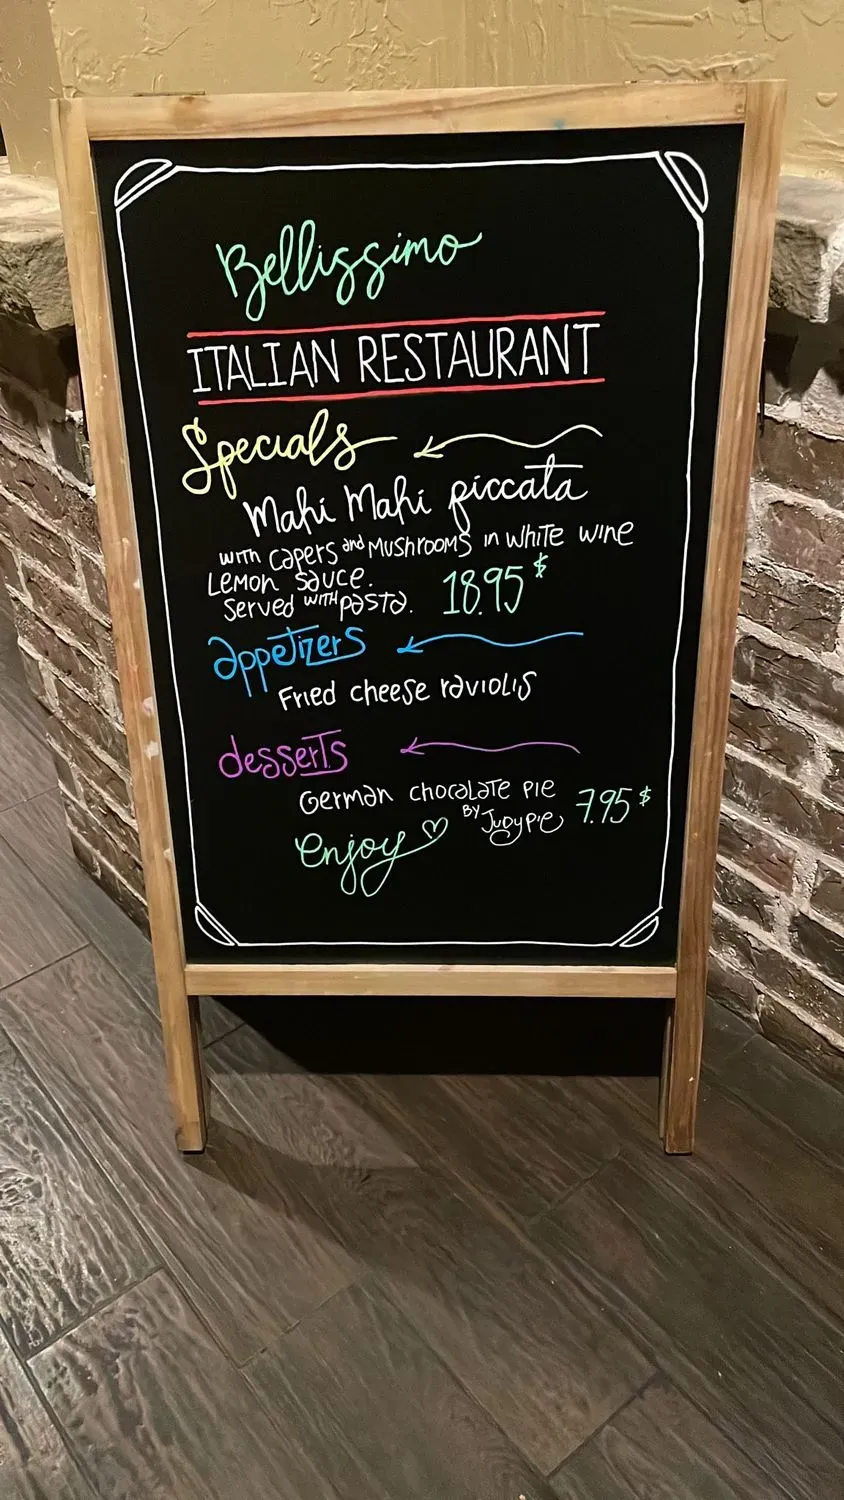 Bellissimo
ITALIAN RESTAURANT
Specials
Mahi Mahi piccata
with capers and Mushrooms in white wine
Lemon sauce.
Served with pasta. 18.95$
appetizers
Fried cheese raviolis
desserts
German chocolate pie
By Judy Pie 7.95$
enjoy